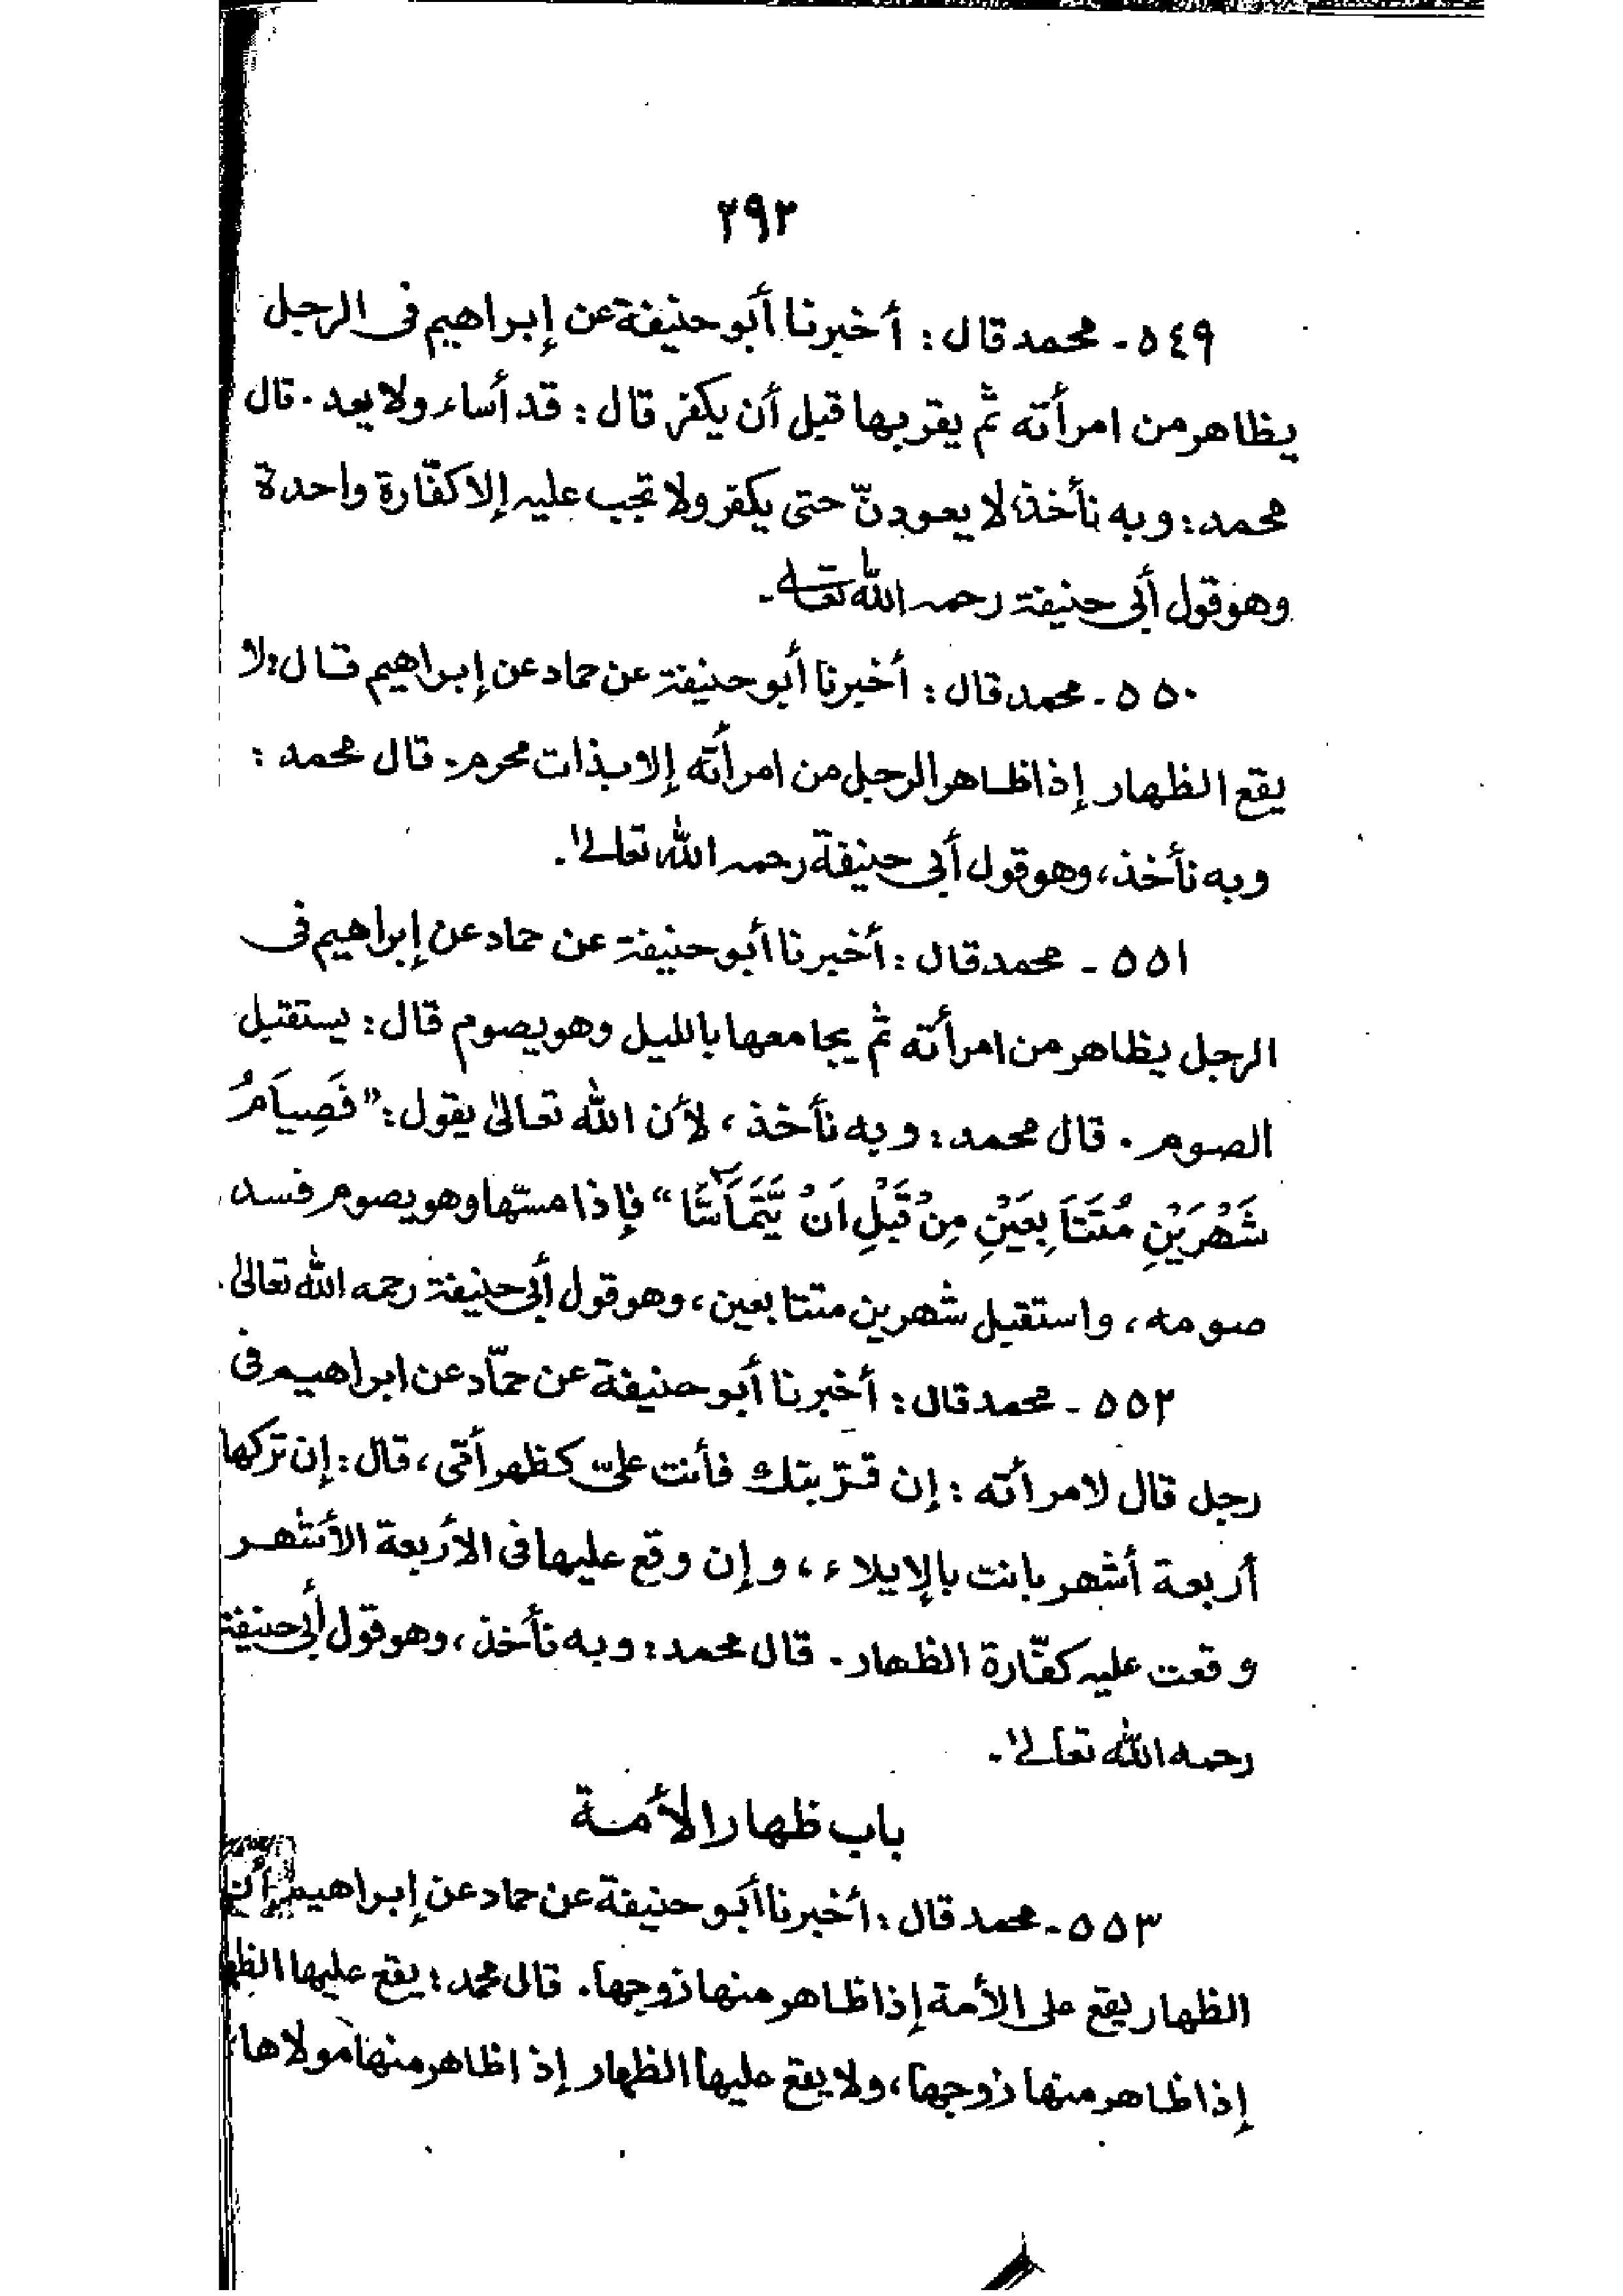 ٢٩٢
٥٤٩ - محمد قال: أخبرنا أبو حنيفة عن إبراهيم فى الرجل
يظاهر من امرأته ثم يقربها قبل أن يكفر قال: قد أساء ولا يعد. قال
محمد: وبه نأخذ، لا يعودنّ حتى يكفر ولا تجب عليه إلا كفّارة واحدة
وهو قول أبى حنيفة رحمه الله تعالى -
٥٥٠ - محمد قال: أخبرنا أبو حنيفة عن حماد عن إبراهيم قال: لا
يقع الظهار إذا ظاهر الرجل من امرأته إلا بذات محرم. قال محمد:
وبه نأخذ، وهو قول أبى حنيفة رحمه الله تعالى.
٥٥١ - محمد قال: أخبرنا أبو حنيفة عن حماد عن إبراهيم فى
الرجل يظاهر من امرأته ثم يجامعها بالليل وهو يصوم قال: يستقبل
الصوم. قال محمد: وبه نأخذ، لأن الله تعالىٰ يقول: "فَصِيَامُ
شَهْرَيْنِ مُتَتَابِعَيْنِ مِنْ قَبْلِ اَنْ يَّتَمَاَسَّا" فإذا مسّها وهو يصوم فسد
صومه، واستقبل شهرين متتابعين، وهو قول أبى حنيفة رحمه الله تعالىٰ.
٥٥٢ - محمد قال: أخبرنا أبو حنيفة عن حمّاد عن ابراهيم فى
رجل قال لامرأته: إن قرّبتك فأنت علىّ كظهر أمّى، قال: إن تركها
أربعة أشهر بانت بالإيلاء، وإن وقع عليها فى الأربعة الأشهر
وقعت عليه كفّارة الظهار. قال محمد: وبه نأخذ، وهو قول أبى حنيفة
رحمه الله تعالى.
باب ظهار الأمة
٥٥٣ - محمد قال: أخبرنا أبو حنيفة عن حماد عن إبراهيم أن
الظهار يقع على الأمة إذا ظاهر منها زوجها. قال محمد: يقع عليها
إذا ظاهر منها زوجها، ولا يقع عليها الظهار إذا ظاهر منها مولاها،